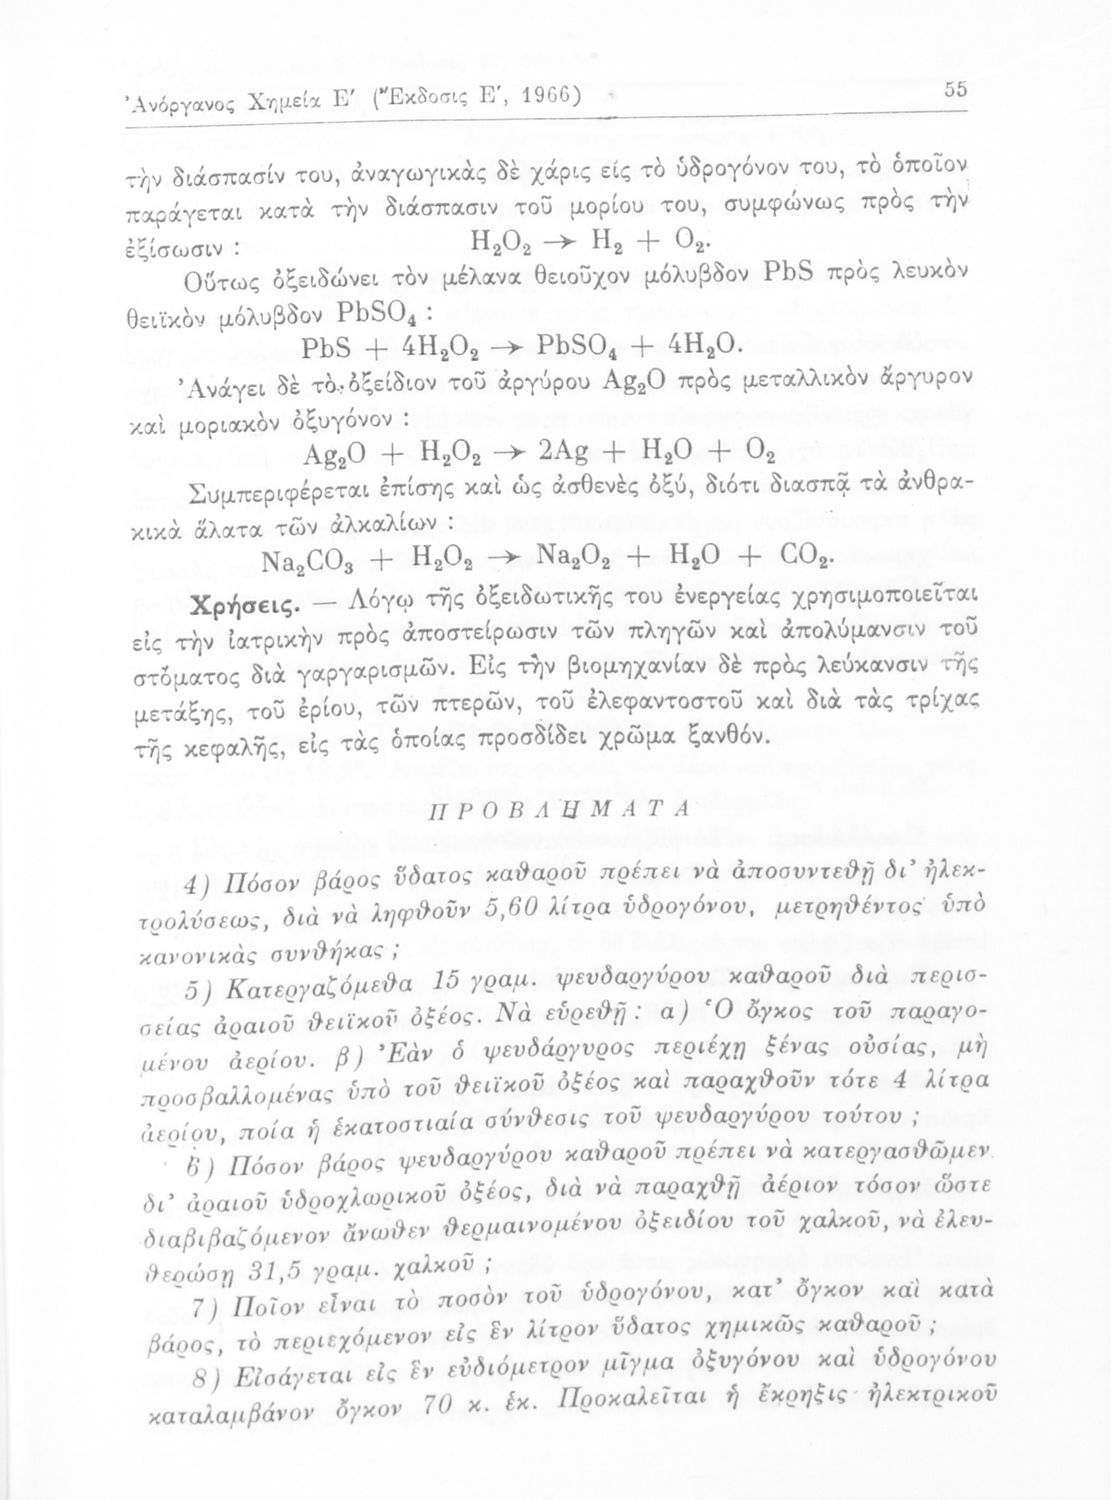 Ἀνόργανος Χημεία Ε' (Ἔκδοσις Ε', 1966) 55
τὴν διάσπασίν του, ἀναγωγικὰς δὲ χάρις εἰς τὸ ὑδρογόνον του, τὸ ὁποῖον
παράγεται κατὰ τὴν διάσπασιν τοῦ μορίου του, συμφώνως πρὸς τὴν
ἐξίσωσιν : H₂O₂ → H₂ + O₂.
Οὕτως ὀξειδώνει τὸν μέλανα θειοῦχον μόλυβδον PbS πρὸς λευκὸν
θειϊκὸν μόλυβδον PbSO₄ :
PbS + 4H₂O₂ → PbSO₄ + 4H₂O.
Ἀνάγει δὲ τὸ ὀξείδιον τοῦ ἀργύρου Ag₂O πρὸς μεταλλικὸν ἄργυρον
καὶ μοριακὸν ὀξυγόνον :
Ag₂O + H₂O₂ → 2Ag + H₂O + O₂
Συμπεριφέρεται ἐπίσης καὶ ὡς ἀσθενὲς ὀξύ, διότι διασπᾷ τὰ ἀνθρα-
κικὰ ἅλατα τῶν ἀλκαλίων :
Na₂CO₃ + H₂O₂ → Na₂O₂ + H₂O + CO₂.
Χρήσεις. — Λόγῳ τῆς ὀξειδωτικῆς του ἐνεργείας χρησιμοποιεῖται
εἰς τὴν ἰατρικὴν πρὸς ἀποστείρωσιν τῶν πληγῶν καὶ ἀπολύμανσιν τοῦ
στόματος διὰ γαργαρισμῶν. Εἰς τὴν βιομηχανίαν δὲ πρὸς λεύκανσιν τῆς
μετάξης, τοῦ ἐρίου, τῶν πτερῶν, τοῦ ἐλεφαντοστοῦ καὶ διὰ τὰς τρίχας
τῆς κεφαλῆς, εἰς τὰς ὁποίας προσδίδει χρῶμα ξανθόν.
ΠΡΟΒΛΗΜΑΤΑ
4) Πόσον βάρος ὕδατος καθαροῦ πρέπει νὰ ἀποσυντεθῇ δι' ἠλεκ-
τρολύσεως, διὰ νὰ ληφθοῦν 5,60 λίτρα ὑδρογόνου, μετρηθέντος ὑπὸ
κανονικὰς συνθήκας ;
5) Κατεργαζόμεθα 15 γραμ. ψευδαργύρου καθαροῦ διὰ περισ-
σείας ἀραιοῦ θειϊκοῦ ὀξέος. Νὰ εὑρεθῇ : α) Ὁ ὄγκος τοῦ παραγο-
μένου ἀερίου. β) Ἐὰν ὁ ψευδάργυρος περιέχῃ ξένας οὐσίας, μὴ
προσβαλλομένας ὑπὸ τοῦ θειϊκοῦ ὀξέος καὶ παραχθοῦν τότε 4 λίτρα
ἀερίου, ποία ἡ ἑκατοστιαία σύνθεσις τοῦ ψευδαργύρου τούτου ;
6) Πόσον βάρος ψευδαργύρου καθαροῦ πρέπει νὰ κατεργασθῶμεν
δι' ἀραιοῦ ὑδροχλωρικοῦ ὀξέος, διὰ νὰ παραχθῇ ἀέριον τόσον ὥστε
διαβιβαζόμενον ἄνωθεν θερμαινομένου ὀξειδίου τοῦ χαλκοῦ, νὰ ἐλευ-
θερώσῃ 31,5 γραμ. χαλκοῦ ;
7) Ποῖον εἶναι τὸ ποσὸν τοῦ ὑδρογόνου, κατ' ὄγκον καὶ κατὰ
βάρος, τὸ περιεχόμενον εἰς ἓν λίτρον ὕδατος χημικῶς καθαροῦ ;
8) Εἰσάγεται εἰς ἓν εὐδιόμετρον μῖγμα ὀξυγόνου καὶ ὑδρογόνου
καταλαμβάνον ὄγκον 70 κ. ἑκ. Προκαλεῖται ἡ ἔκρηξις ἠλεκτρικοῦ